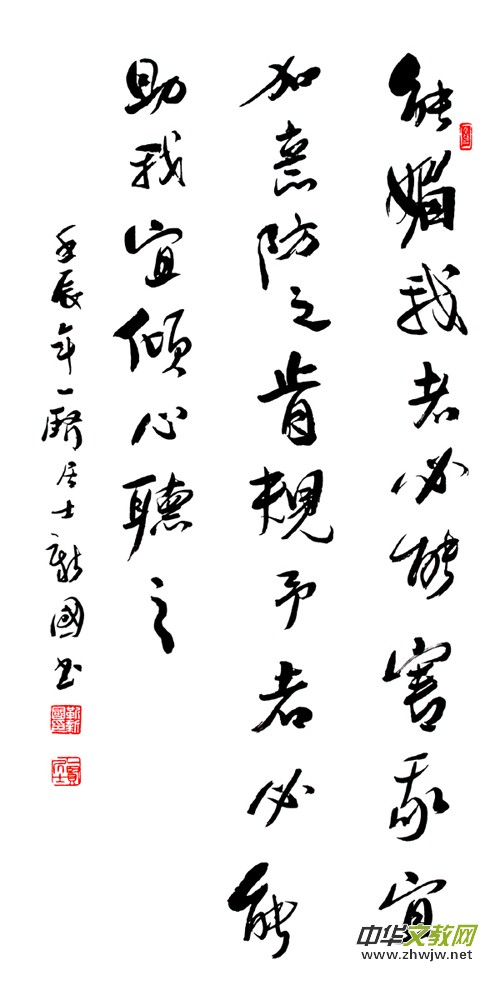 能媚我者必能害我宜
加意防之肯規予者必能
助我宜傾心聽之
壬辰年一居士新國书
中华文教网
www.zhwjw.net